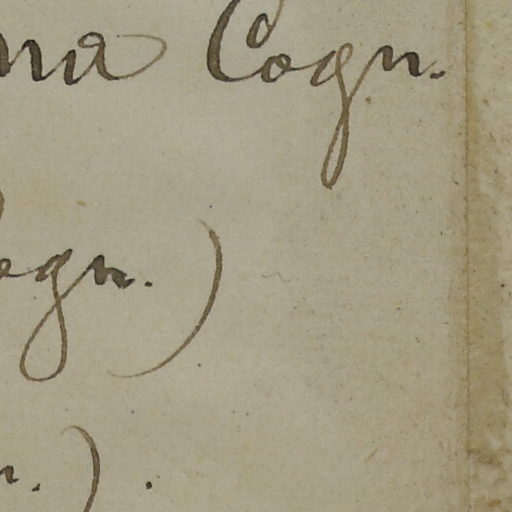 na Cogn.
ogn.)
n.).